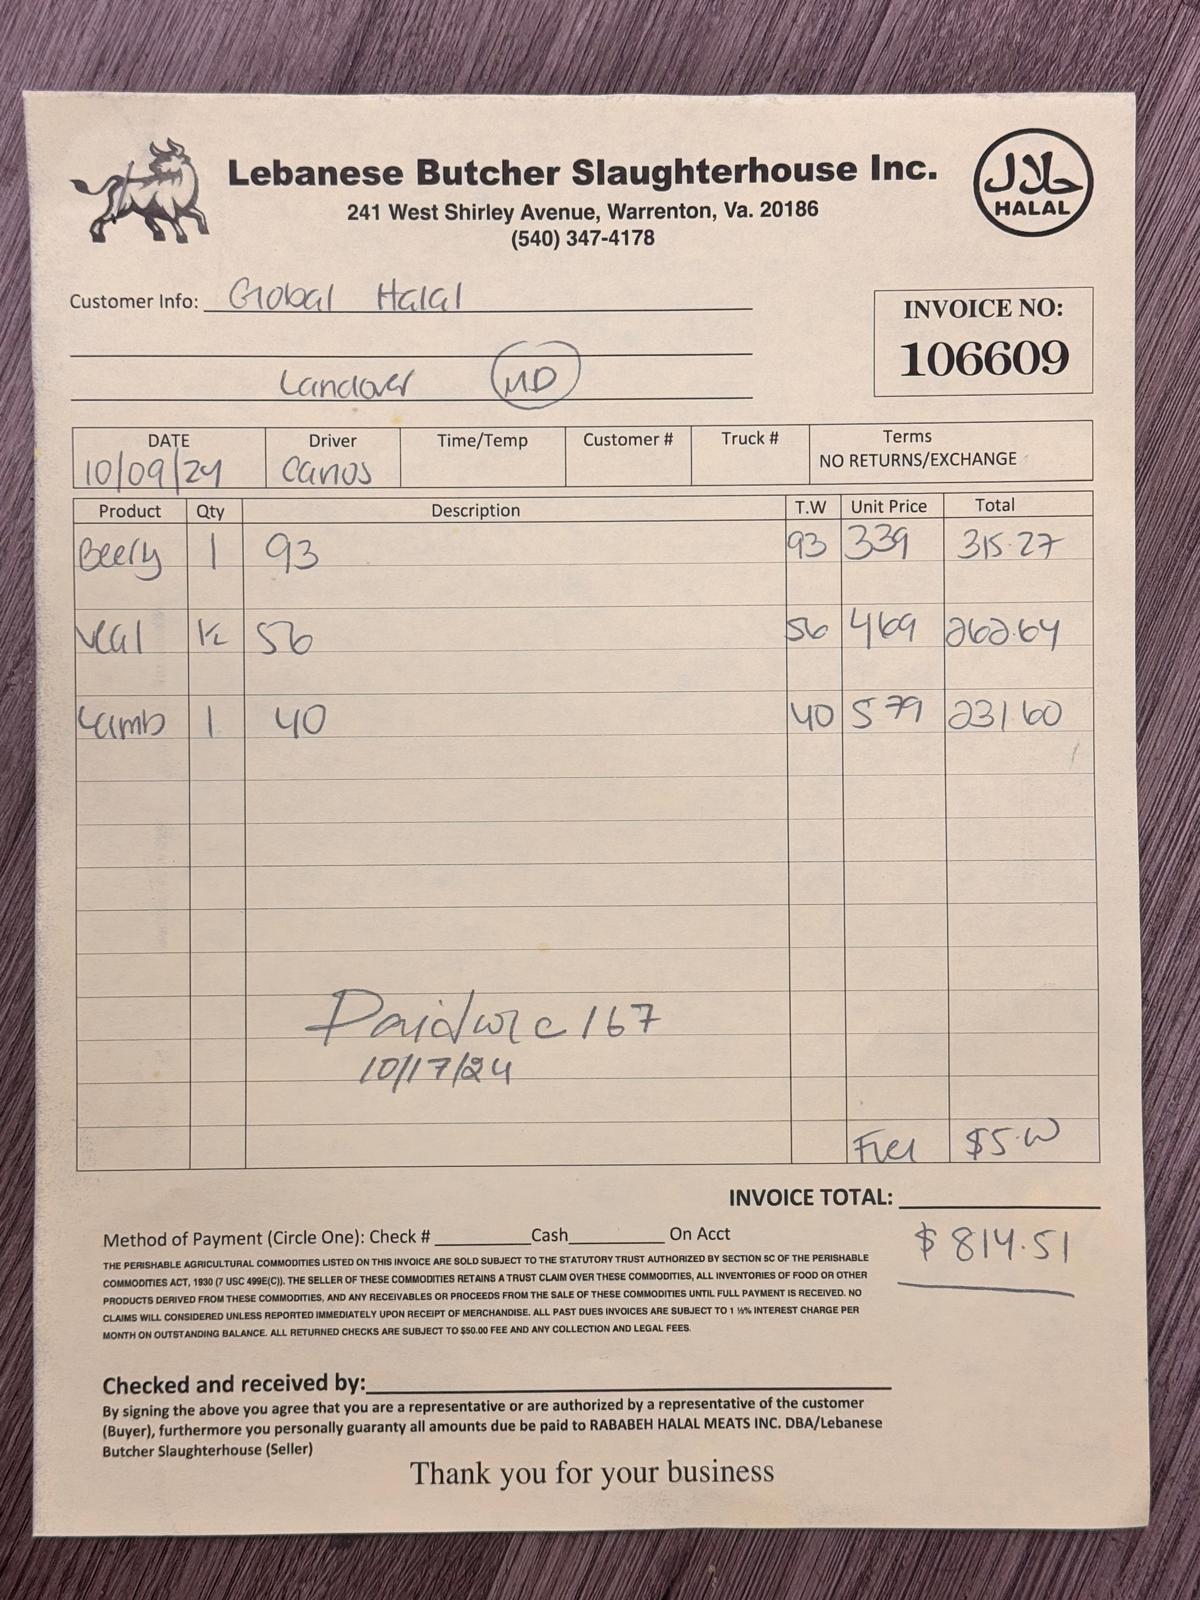 Lebanese Butcher Slaughterhouse Inc.
241 West Shirley Avenue, Warrenton, Va. 20186
(540) 347-4178
حلال
HALAL
Customer Info: Global Halal
Landover MD
INVOICE NO:
106609
DATE Driver Time/Temp Customer # Truck # Terms
10/09/24 NO RETURNS/EXCHANGE
Product Qty Description T.W Unit Price Total
1 93 93 339 315.27
Veal ½ 56 56 469 262.64
Lamb 1 40 40 579 231.60
Paid 167
10/17/24
Fuel $5.00
INVOICE TOTAL:
$814.51
Method of Payment (Circle One): Check # Cash On Acct
THE PERISHABLE AGRICULTURAL COMMODITIES LISTED ON THIS INVOICE ARE SOLD SUBJECT TO THE STATUTORY TRUST AUTHORIZED BY SECTION 5C OF THE PERISHABLE
COMMODITIES ACT, 1930 (7 USC 499E(C)). THE SELLER OF THESE COMMODITIES RETAINS A TRUST CLAIM OVER THESE COMMODITIES, ALL INVENTORIES OF FOOD OR OTHER
PRODUCTS DERIVED FROM THESE COMMODITIES, AND ANY RECEIVABLES OR PROCEEDS FROM THE SALE OF THESE COMMODITIES UNTIL FULL PAYMENT IS RECEIVED. NO
CLAIMS WILL CONSIDERED UNLESS REPORTED IMMEDIATELY UPON RECEIPT OF MERCHANDISE. ALL PAST DUES INVOICES ARE SUBJECT TO 1 ½% INTEREST CHARGE PER
MONTH ON OUTSTANDING BALANCE. ALL RETURNED CHECKS ARE SUBJECT TO $50.00 FEE AND ANY COLLECTION AND LEGAL FEES.
Checked and received by:
By signing the above you agree that you are a representative or are authorized by a representative of the customer
(Buyer), furthermore you personally guaranty all amounts due be paid to RABABEH HALAL MEATS INC. DBA/Lebanese
Butcher Slaughterhouse (Seller)
Thank you for your business